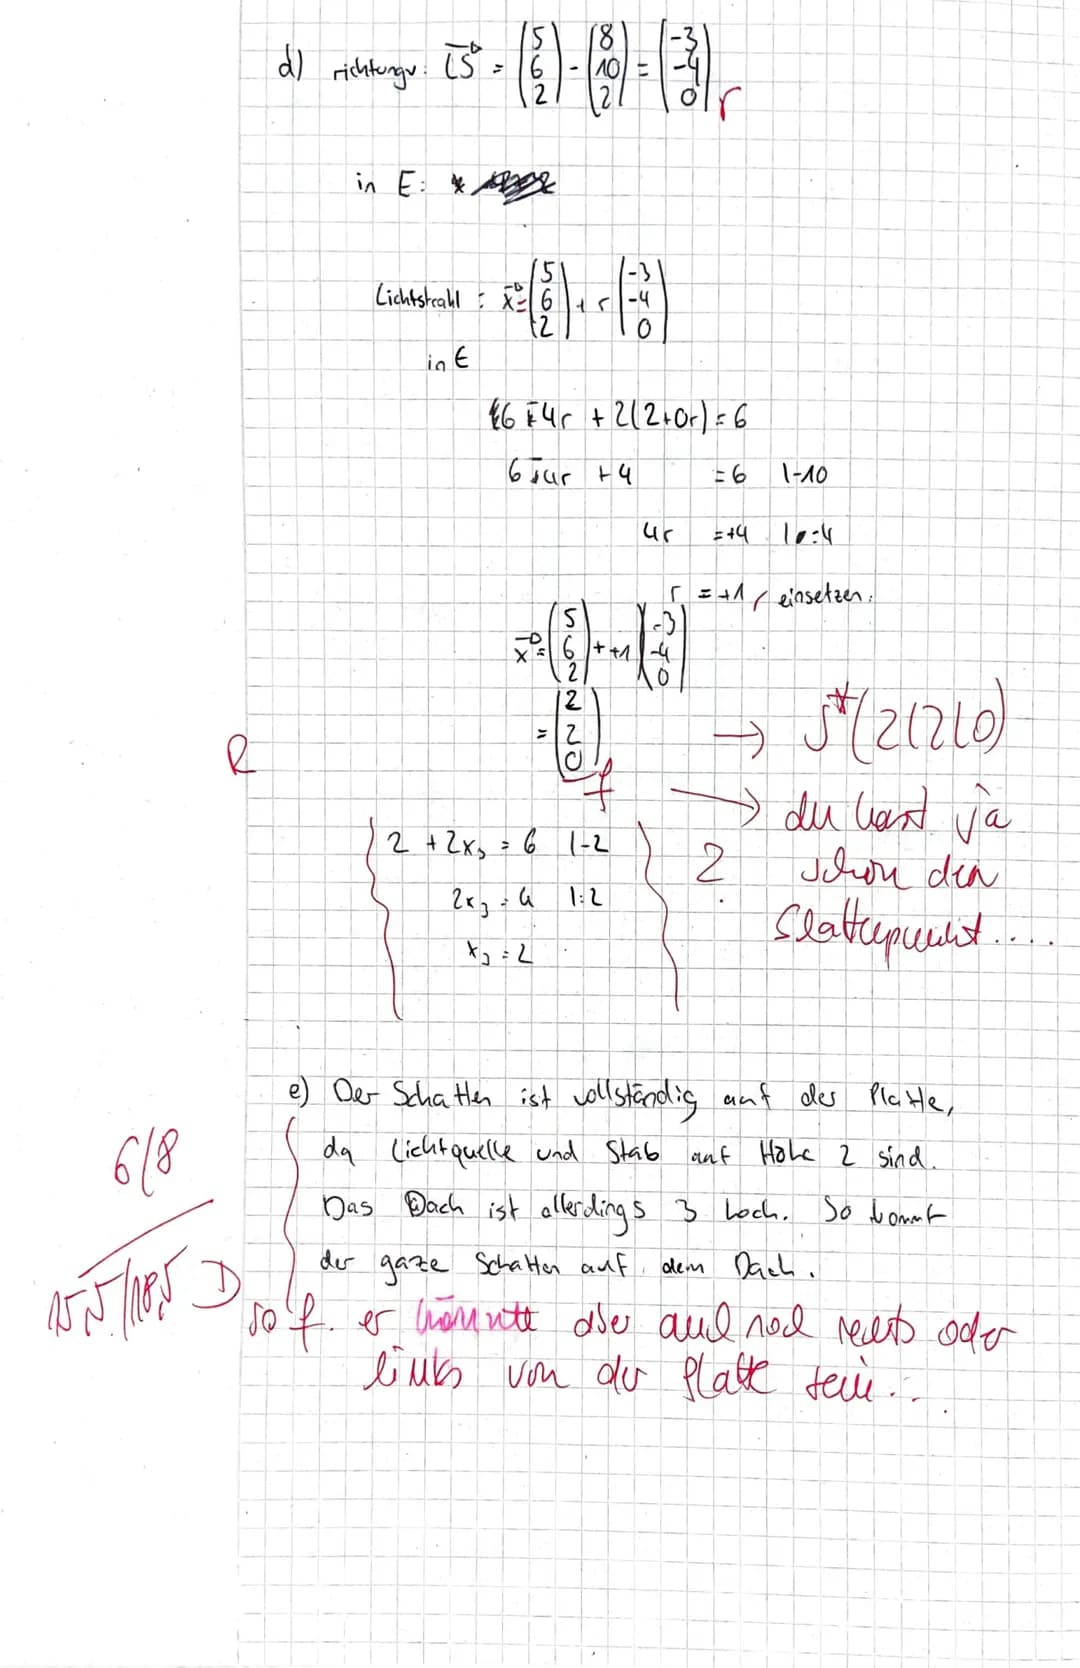 d) richtungsv: LS = (5 6 2) - (8 10 2) = (-3 -4 0) r
in E:
Lichtstrahl : x = (5 6 2) + r (-3 -4 0)
in E
6 - 4r + 2(2+0r) = 6
6 - 4r + 4 = 6 |-10
4r = +4 |:4
r = +1 r einsetzen:
x = (5 6 2) + +1 (-3 -4 0)
= (2 2 0) f
→ S*(2|2|0)
R
→ du hast ja
2 + 2x₃ = 6 |-2
? schon den
2x₃ = 4 |:2
x₃ = 2
e) Der Schatten ist vollständig auf der Platte,
da Lichtquelle und Stab auf Höhe 2 sind.
6/8
Das Dach ist allerdings 3 hoch. So kommt
der gaze Schatten auf dem Dach.
15,5/18,5 D
so f. er könnte aber auch noch rechts oder
links von der Platte sein...